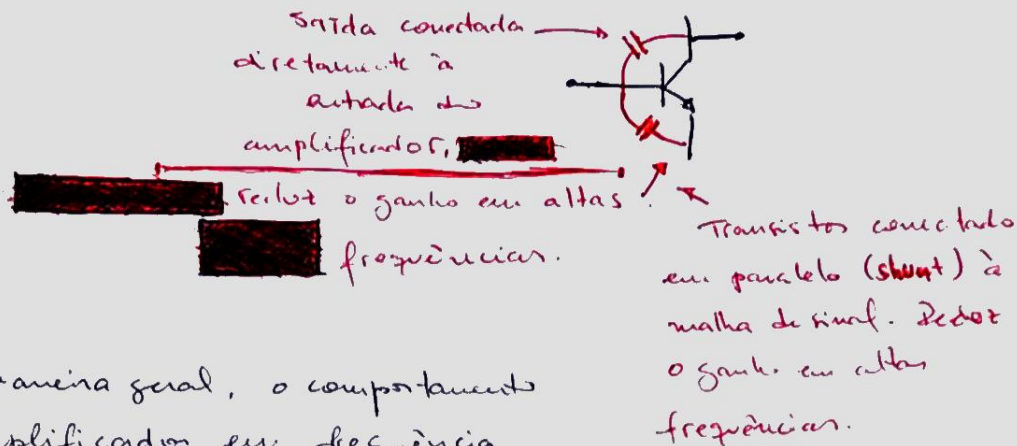 saída conectada
diretamente à
entrada do
amplificador,
reduz o ganho em altas
frequências.
Transistor conectado
em paralelo (shunt) à
malha de sinal. Reduz
o ganho em altas
frequências.
aneira geral, o comportamento
plificador em frequência